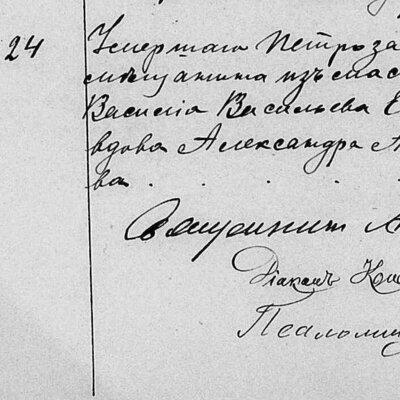 24 Умершаго Петроза
мѣщанина изъ
Василія Васильева Е
вдова Александра А
ва . . . .
Священникъ А
Діаконъ
Псалом